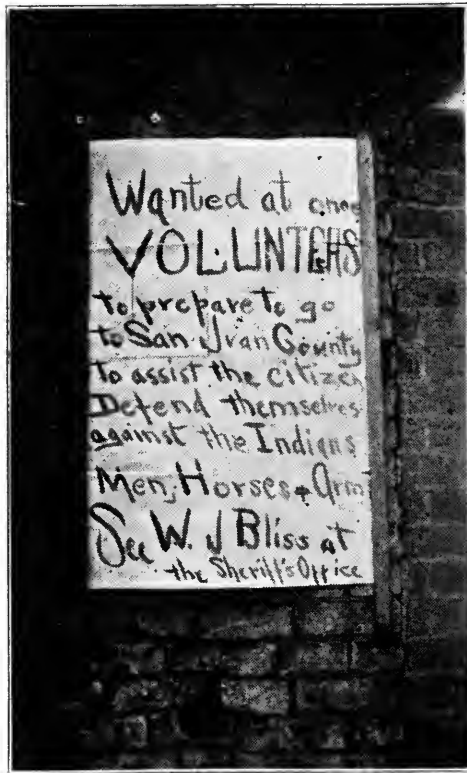 Wanted at once
VOLUNTERS
to prepare to go
to San Jvan County
To assist the citizen
Defend themselves
against the Indians
Men, Horses + Arm
See W. J Bliss at
the Sheriff's Office